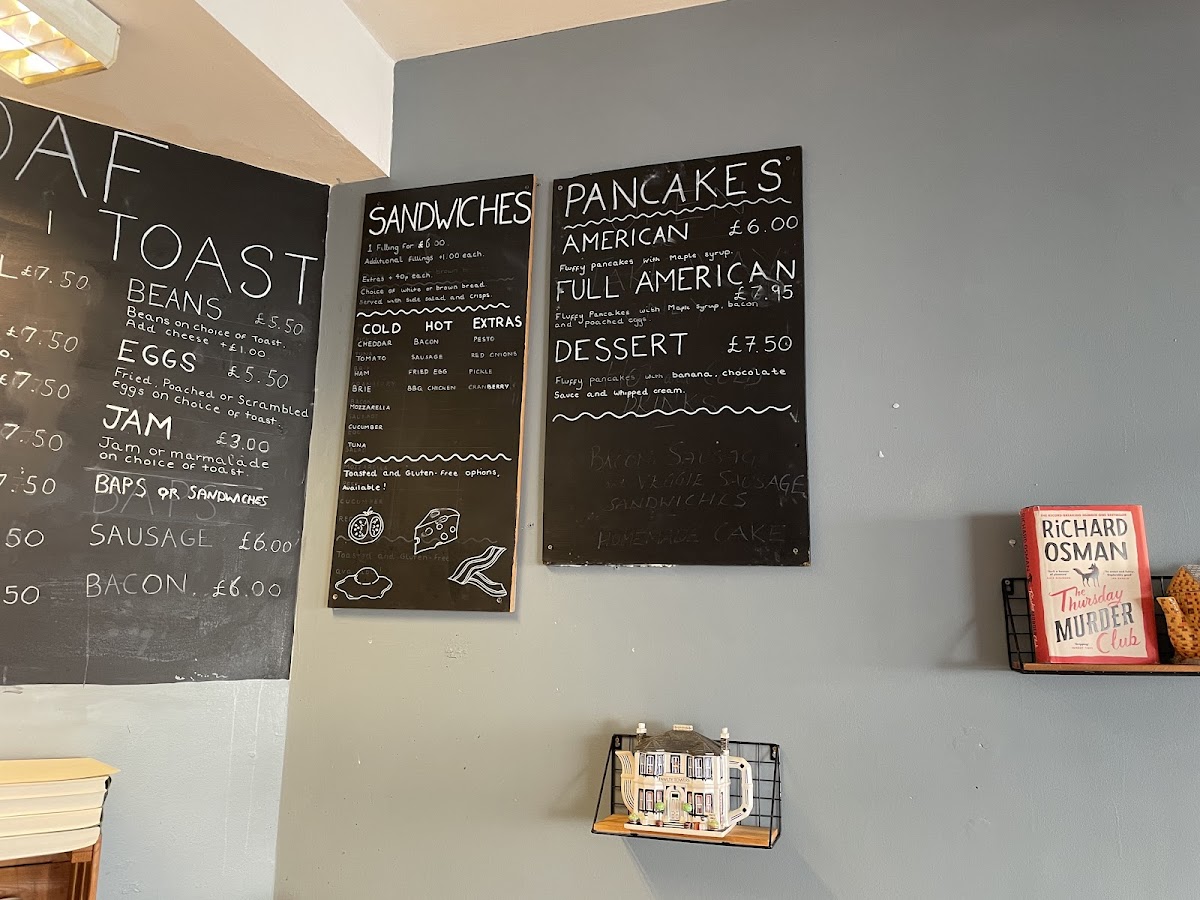 OAF
L £7.50
£7.50
£7.50
7.50
7.50
50
50
TOAST
BEANS £5.50
Beans on choice of Toast.
Add cheese +£1.00
EGGS £5.50
Fried, Poached or Scrambled
eggs on choice of toast.
JAM £3.00
Jam or marmalade
on choice of toast.
BAPS OR SANDWICHES
SAUSAGE £6.00
BACON. £6.00
SANDWICHES
1 Filling for £6.00.
Additional fillings +1.00 each.
Extras + 40p each.
Choice of white or brown bread.
Served with side salad, and crisps.
COLD HOT EXTRAS
CHEDDAR BACON PESTO
TOMATO SAUSAGE RED ONIONS
HAM FRIED EGG PICKLE
BRIE BBQ CHICKEN CRANBERRY
MOZZARELLA
CUCUMBER
TUNA
Toasted and Gluten-free options,
Available!
Toasted and Gluten-free
PANCAKES
AMERICAN £6.00
Fluffy pancakes with Maple syrup.
FULL AMERICAN
£7.95
Fluffy Pancakes with Maple syrup, bacon
and poached eggs.
DESSERT £7.50
Fluffy pancakes with banana, chocolate
Sauce and whipped cream.
DRINKS
BACON, SAUSAG
VEGGIE SAUSAGE
SANDWICHES
HOMEMADE CAKE
RiCHARD
OSMAN
The
Thursday
MURDER
Club